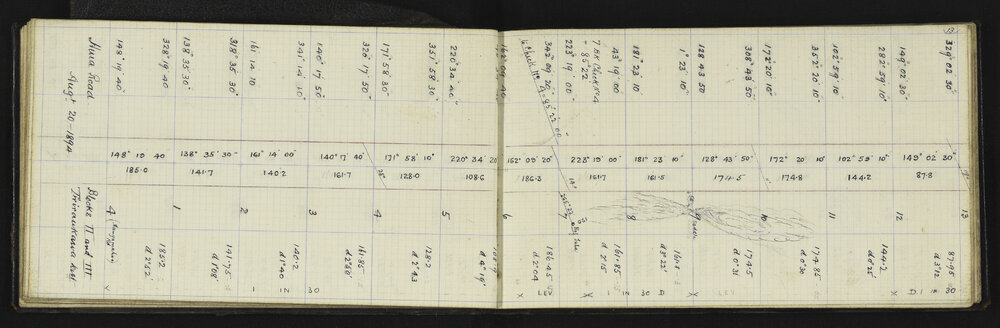 Augt. 20 - 1894
148° 19' 40"
328° 19' 40"
138° 35' 30"
318° 35' 30"
161 14 10
341° 14' 10"
140° 17' 50"
320° 17' 50"
171° 58' 30"
351° 58' 30"
220° 34' 40"
162° 09' 40
342° 09' 20"
223° 19' 00"
43° 19' 00
181° 23' 10
1° 23' 10"
128 43 50
308° 43' 50"
172° 20' 10"
352° 20' 10"
102° 59' 10
282° 59' 10"
149° 02' 30"
329° 02' 30"
13
148° 19 40
138° 35' 30"
161° 14' 00"
140° 17' 40"
171° 58' 10"
220° 34' 20
162° 09' 20"
223° 19' 00"
181° 23 10
128° 43' 50"
172° 20 10
102° 59' 10"
149° 02 30"
185.0
141.7
140.2
161.7
128.0
108.6
186.3
161.7
161.5
174.5
174.8
144.2
87.8
Blocks II and III
1
2
3
4
5
6
7
8
9
10
11
12
13
185.2
d 2° 52'
141.75
d 1° 08'
140.2
d 1° 40
161.85
d 2° 50'
128.2
d 2° 43
d 4° 19'
186.45
d 2° 04
161.85
d 2° 15'
161.8
d 3° 22'
174.5
d 0° 31
174.85
d 0° 30
144.2
d 0° 25'
87.95
1 12 30
X LEV
X 1 12 30 D
X LEV
X D.1 12 30